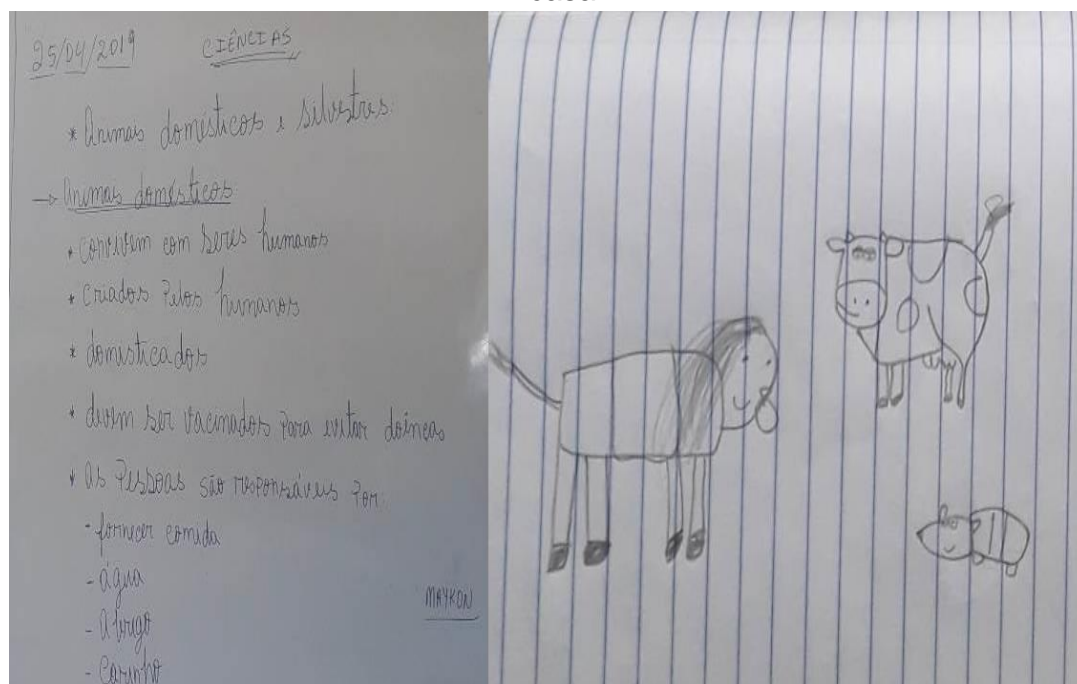 casa
25/04/2019 CIÊNCIAS
* Animais domésticos e silvestres.
→ Animais domésticos:
* convivem com seres humanos
* Criados Pelos humanos
* domesticados
* devem ser vacinados Para evitar doenças
* As Pessoas são responsáveis Por:
- fornecer comida
- água
- Abrigo
- Carinho
MAYKON